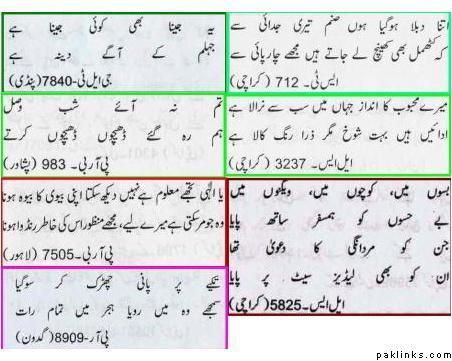 اتنا دبلا ہوگیا ہوں صنم تیری جدائی سے
کہ کھٹمل بھی کھینچ لے جاتے ہیں مجھے چارپائی سے
ایس ٹی۔ 712 (کراچی)
یہ جینا بھی کوئی جینا ہے
جہلم کے آگے دینہ ہے
جی ایل ٹی-7840 (پنڈی)
میرے محبوب کا انداز جہاں میں سب سے نرالا ہے
ادائیں ہیں بہت شوخ مگر ذرا رنگ کالا ہے
ایل ایس۔ 3237 (کراچی)
تم نہ آئے شب وصل
ہم رہ گئے ڈھیچوں ڈھیچوں کرتے
پی آر بی۔ 983 (پشاور)
بسوں میں، کوچوں میں، ویگنوں میں
بے حسوں کو ہمسفر ساتھ پایا
جن کو مردانگی کا دعویٰ تھا
ان کو بھی لیڈیز سیٹ پر پایا
ایل ایس۔5825 (کراچی)
یا الٰہی تجھے معلوم ہے نہیں دیکھ سکتا اپنی بیوی کا بیوہ ہونا
وہ جو مر سکتی ہے میرے لیے، مجھے منظور اس کی خاطر رنڈوا ہونا
پی آر بی۔ 7505 (لاہور)
تکیے پر پانی چھڑک کر سوگیا
سمجھے وہ میں رویا ہجر میں تمام رات
پی آر-8909 (گدون)
paklinks.com